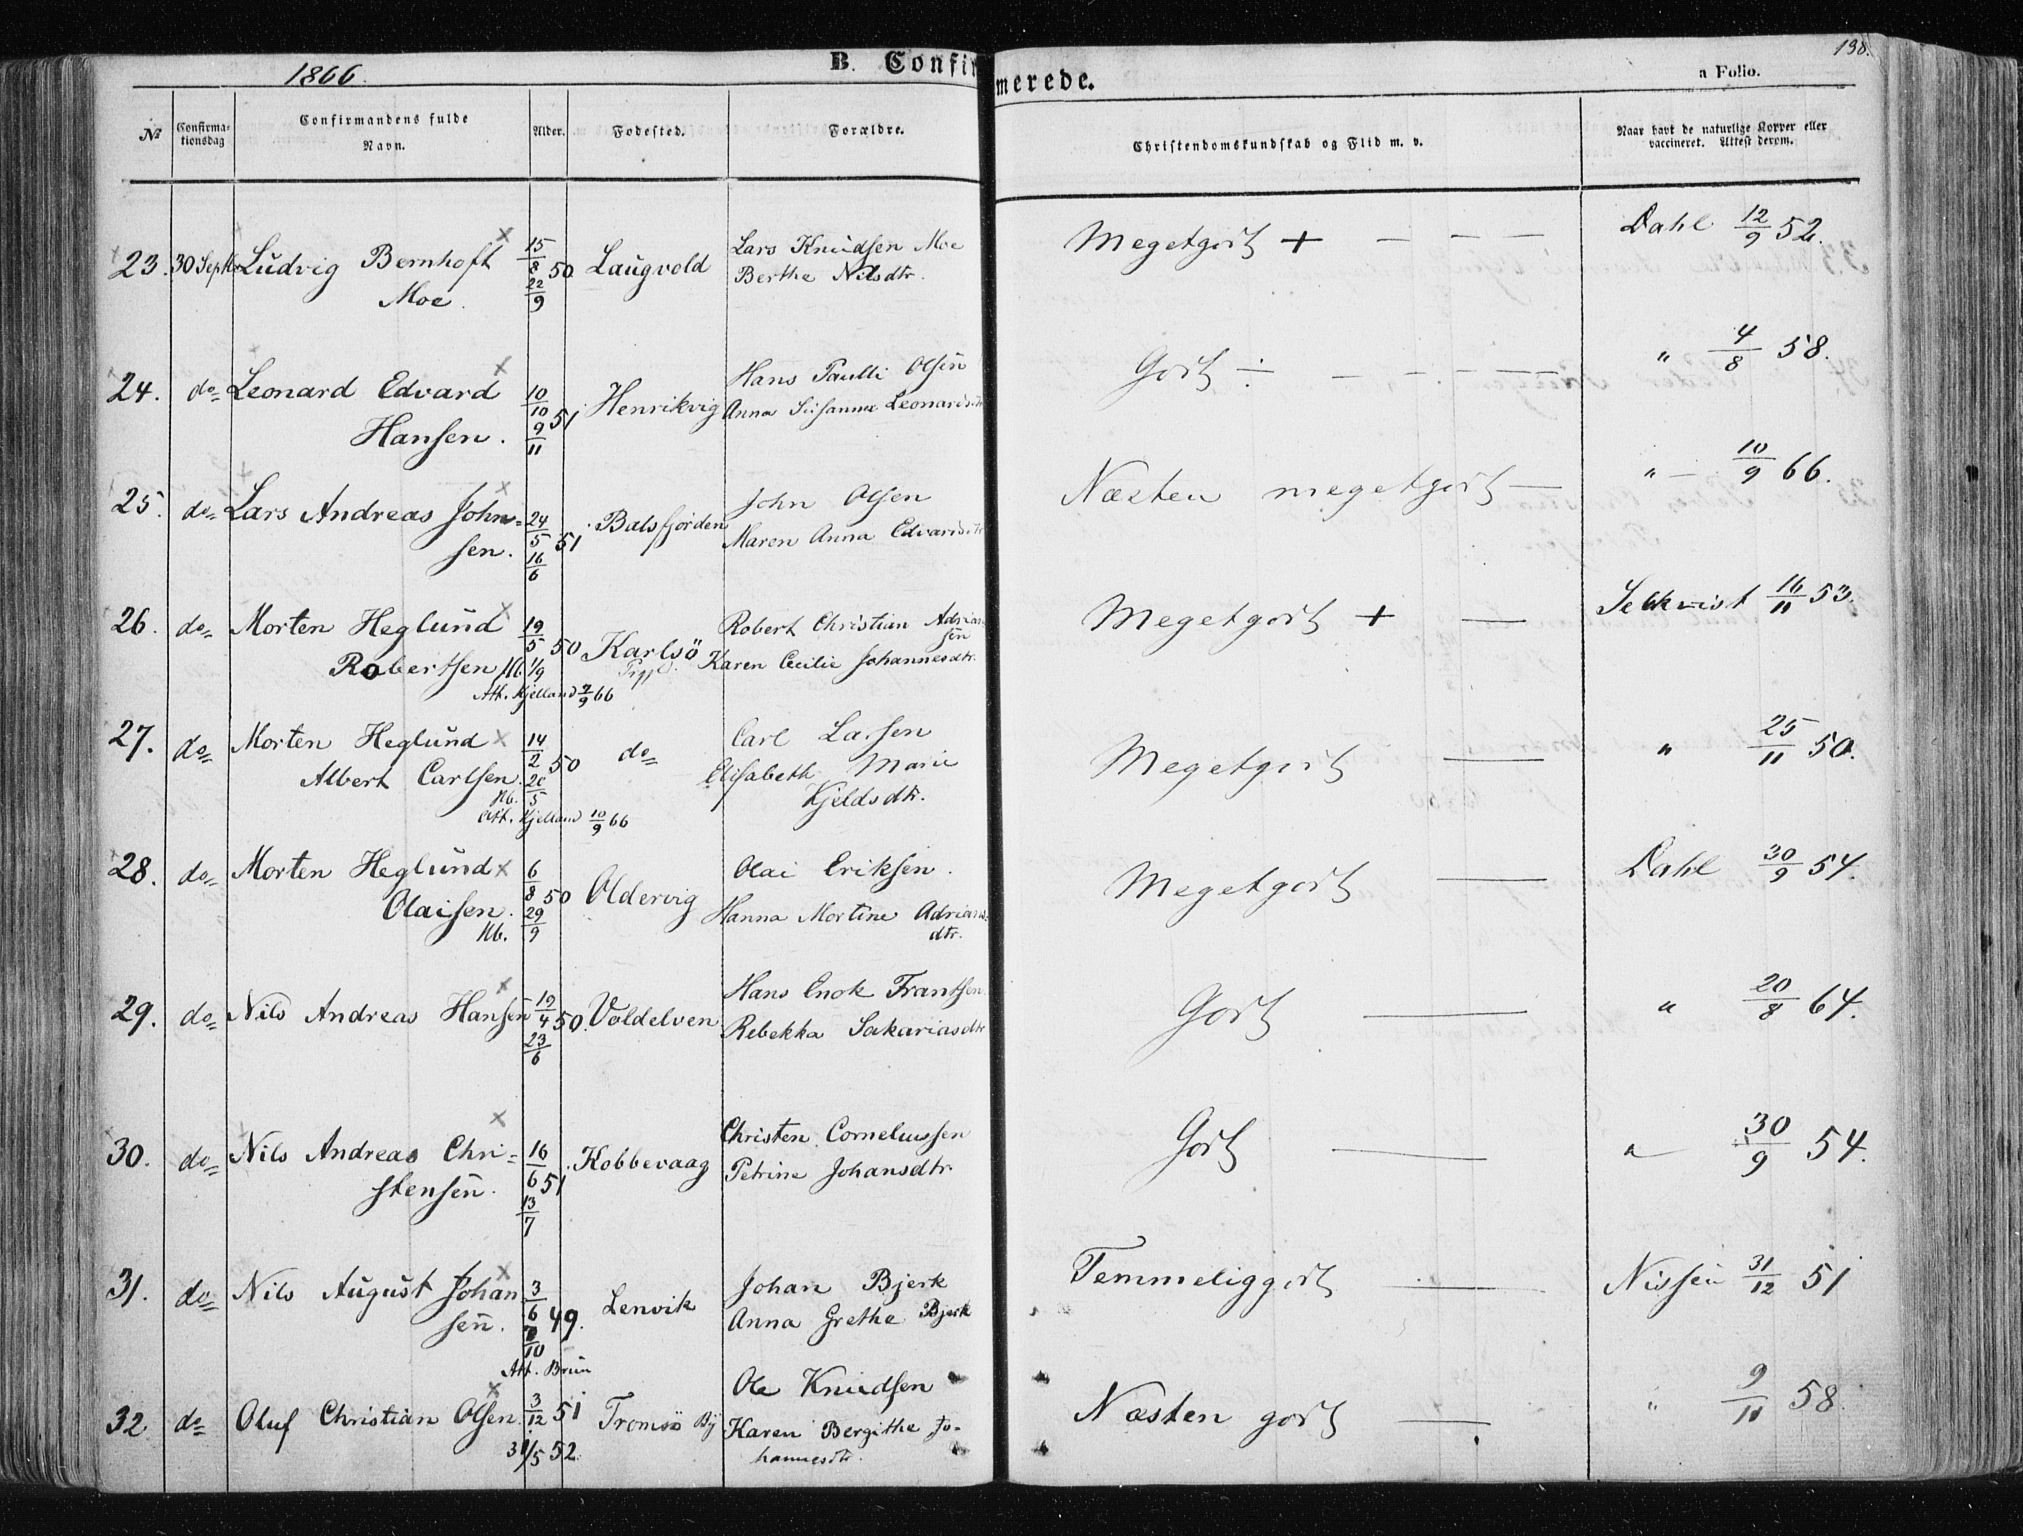 1866.
B. Confirmerede.
198.
a Folio.
No
Confirma-
tionsdag
Confirmandens fulde
Navn.
Alder.
Fødested.
Forældre.
Christendomskundskab og Flid m. v.
Naar havt de naturlige Kopper eller
vaccineret. Attest derom.
23. 30 Septbr Ludvig Bernhoft Moe. 15/8 50 22/9 Laugvold
Lars Knudsen Moe
Berthe Nilsdtr.
Megetgodt + — — — Dahl 12/9 52.
24. do= Leonard Edvard Hansen. 10/10 51 9/11 Henrikvig
Hans Paulli Olsen
Anna Susanna Leonardsdtr
Godt ÷ — — — " 4/8 58.
25. do= Lars Andreas John=
sen. 24/5 51 16/6 Balsfjorden
John Olsen
Maren Anna Edvardsdtr
Næsten megetgodt — " — 10/9 66.
26. do= Morten Heglund Robertsen Nb. 19/5 50 1/9 Karlsö
Att. Kjelland 7/9 66
Robert Christian Adrian
sen
Karen Cecilie Johannesdtr.
Megetgodt + — Selkvist 16/11 53.
27. do= Morten Heglund
Albert Carlsen. 14/2 50 20/5 do=
Nb. Att. Kjelland 10/9 66
Carl Larsen
Elisabeth Marie
Kjeldsdtr.
Megetgodt — " 25/11 50.
28. do= Morten Heglund
Olaisen. Nb. 6/8 50 29/9 Oldervig
Olai Eriksen.
Hanna Mortine Adrians=
dtr.
Megetgodt — Dahl 30/9 54.
29. do= Nils Andreas Hansen 19/4 50. 23/6 Voldelven
Hans Enok Frantsen
Rebekka Sakariasdtr
Godt — " 20/8 64.
30. do= Nils Andreas Chri=
stensen. 16/6 51 13/7 Kobbevaag
Christen Corneliussen
Petrine Johansdtr.
Godt — " 30/9 54.
31. do= Nils August Johan
sen. 3/6 49. 7/10 Lenvik
Att. Brun
Johan Bjerk
Anna Grethe Bjerk
Temmeliggodt — Nissen 31/12 51
32 do= Oluf Christian Olsen. 3/12 51 31/5 52 Tromsö By
Ole Knudsen
Karen Bergithe Jo-
hannesdtr.
Næsten godt — " 9/11 58.